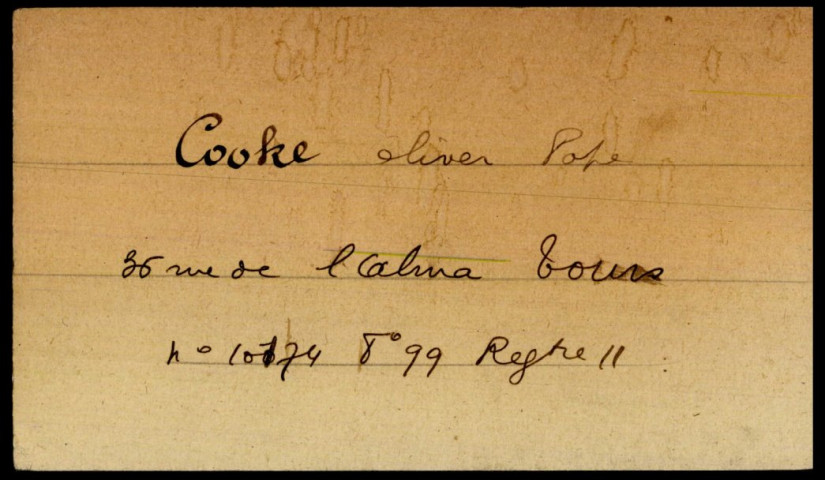 Cooke oliver Pope
36 rue de l'Alma Tours
no 10174 Fo 99 Regtre 11